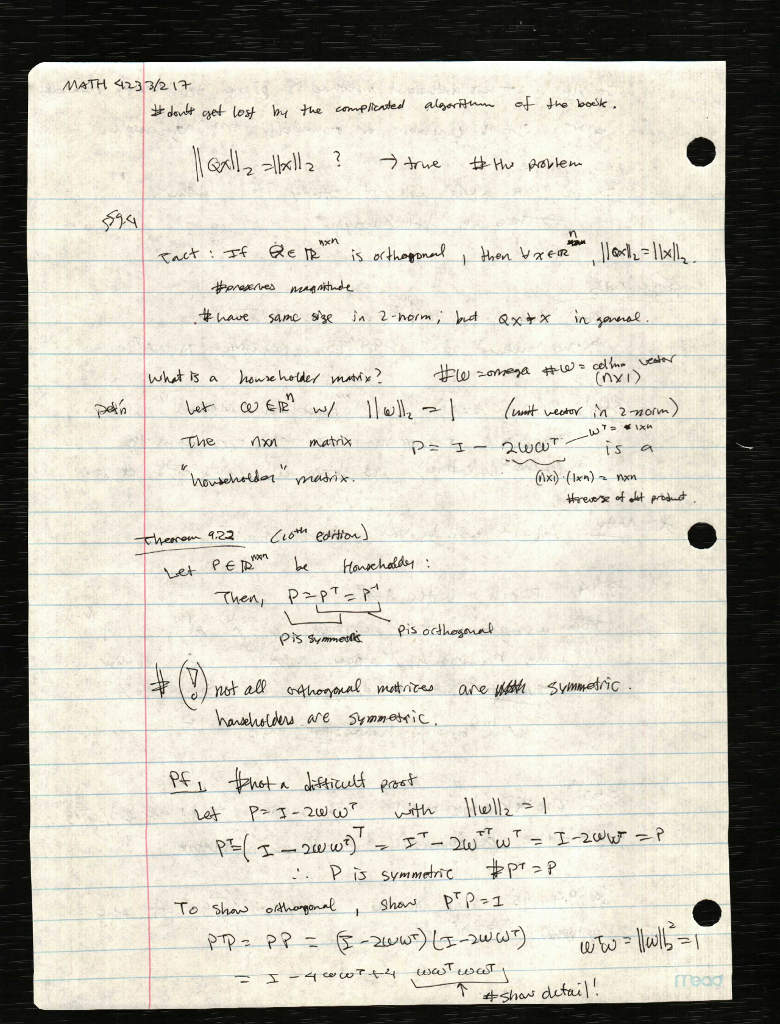 MATH 423 3/217
# don't get lost by the complicated algorithm of the book.
||Qx||₂ = ||x||₂ ? → true # the problem
§9.4
Fact : If Q ∈ ℝⁿˣⁿ is orthogonal, then ∀x∈ℝⁿ, ||Qx||₂ = ||x||₂.
# preserves magnitude
# have same size in 2-norm; but Qx ≠ x in general.
What is a householder matrix? # ω = omega # ω = column vector
(n×1)
Def'n Let ω ∈ ℝⁿ w/ ||ω||₂ = 1 (unit vector in 2-norm)
The nxn matrix P = I - 2ωωᵀ is a
ωᵀ = 1×n
"householder" matrix. (n×1)·(1×n) = n×n
# reverse of dot product.
Theorem 9.22 (10th edition)
Let P ∈ ℝⁿˣⁿ be Householder :
Then, P = Pᵀ = P⁻¹
P is symmetric P is orthogonal
# (!) not all orthogonal matrices are symmetric.
householders are symmetric.
Pf # not a difficult proof
Let P = I - 2ωωᵀ with ||ω||₂ = 1
Pᵀ = (I - 2ωωᵀ)ᵀ = Iᵀ - 2ωᵀᵀωᵀ = I - 2ωωᵀ = P
∴ P is symmetric # Pᵀ = P
To show orthogonal, show PᵀP = I.
PᵀP = PP = (I - 2ωωᵀ)(I - 2ωωᵀ) ωᵀω = ||ω||₂² = 1
= I - 4ωωᵀ + 4 ωωᵀωωᵀ
↑ # show detail!
mead